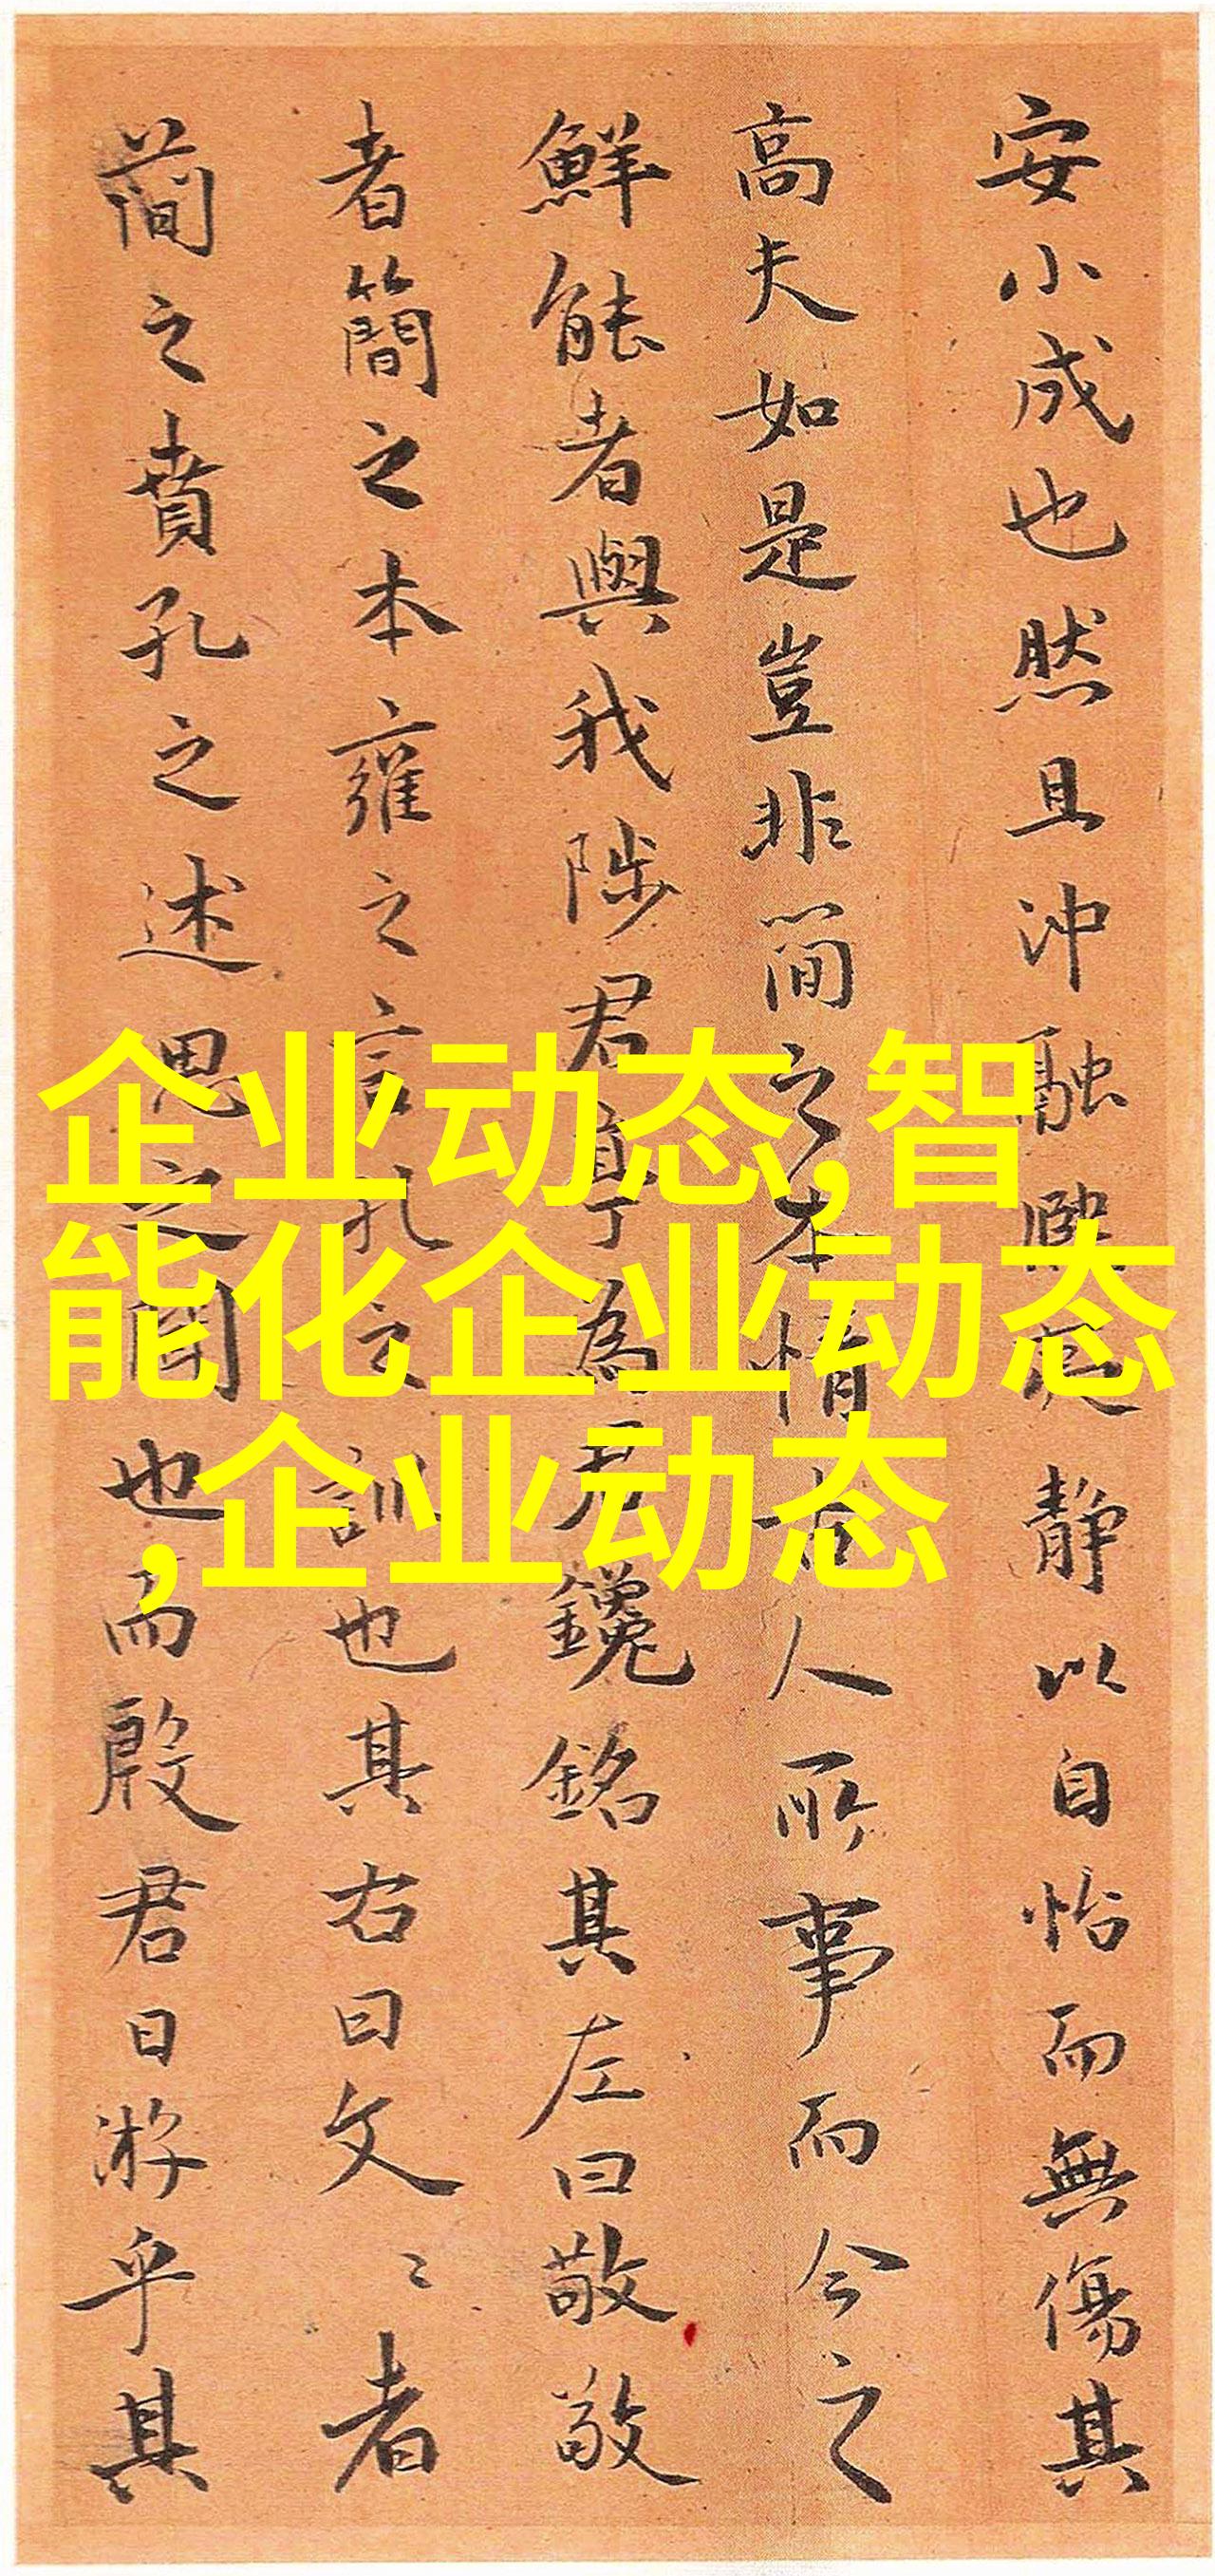 安小成也然且沖融熙 静以自怡而無傷其
高夫如是豈非簡之本情 人所事而今之
鮮能者與我陟君亭為君鑱銘其左曰敬敬
者簡之本雍之言孔之訓也其右曰文〻者
簡之賁孔之述思之 也而殷君日游乎其
企业动态,智
能化企业动态
,企业动态